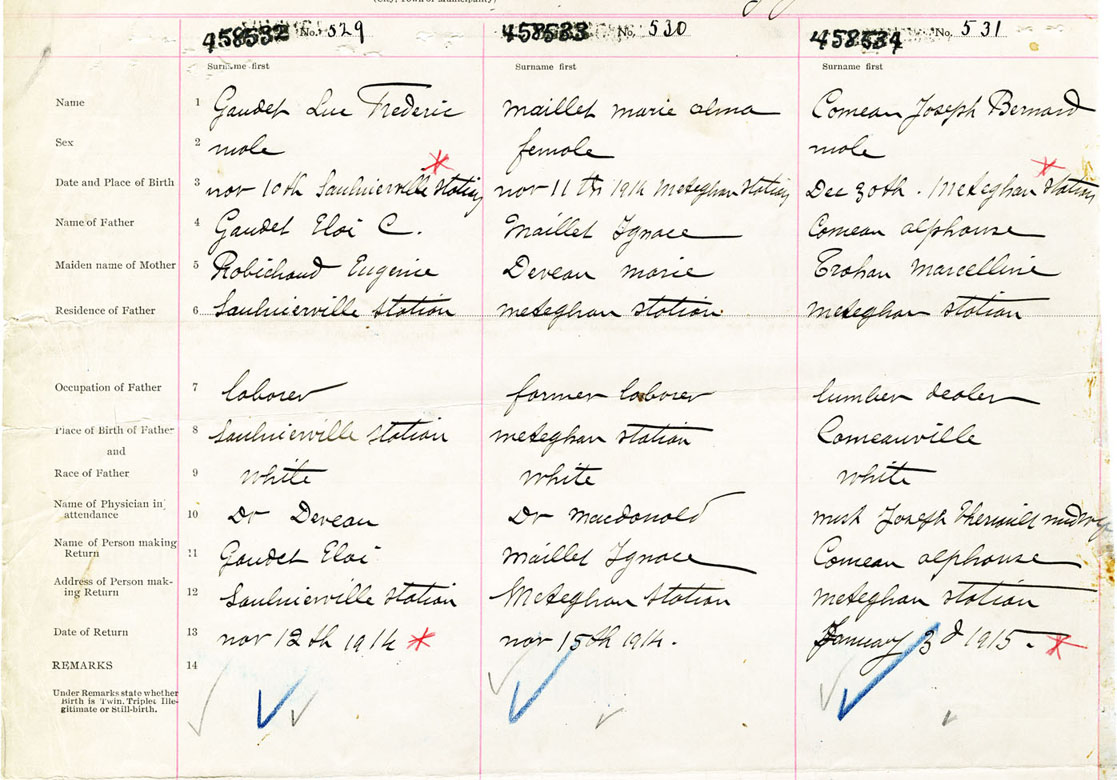 (City, Town or Municipality)
458532 No. 529 458533 No. 530 458534 No. 531
Surname first Surname first Surname first
Name 1 Gaudet Luc Frederic maillet marie alma Comeau Joseph Bernard
Sex 2 male female male
Date and Place of Birth 3 nov 10th Saulnierville Station nov 11th 1914 Meteghan Station Dec 30th. Meteghan Station
Name of Father 4 Gaudet Eloi C. Maillet Ignace Comeau alphonse
Maiden name of Mother 5 Robichaud Eugenie Deveau marie Trahan Marcelline
Residence of Father 6 Saulnierville Station meteghan station meteghan station
Occupation of Father 7 laborer farmer laborer lumber dealer
Place of Birth of Father 8 Saulnierville Station meteghan station Comeauville
and
Race of Father 9 white white white
Name of Physician in attendance 10 Dr Deveau Dr macdonald Joseph Theriault midwife
Name of Person making Return 11 Gaudet Eloi Maillet Ignace Comeau alphonse
Address of Person making Return 12 Saulnierville Station Meteghan Station meteghan station
Date of Return 13 nov 12th 1914 nov 15th 1914. January 3d 1915.
REMARKS 14
Under Remarks state whether
Birth is Twin, Triplet Ille-
gitimate or Still-birth.